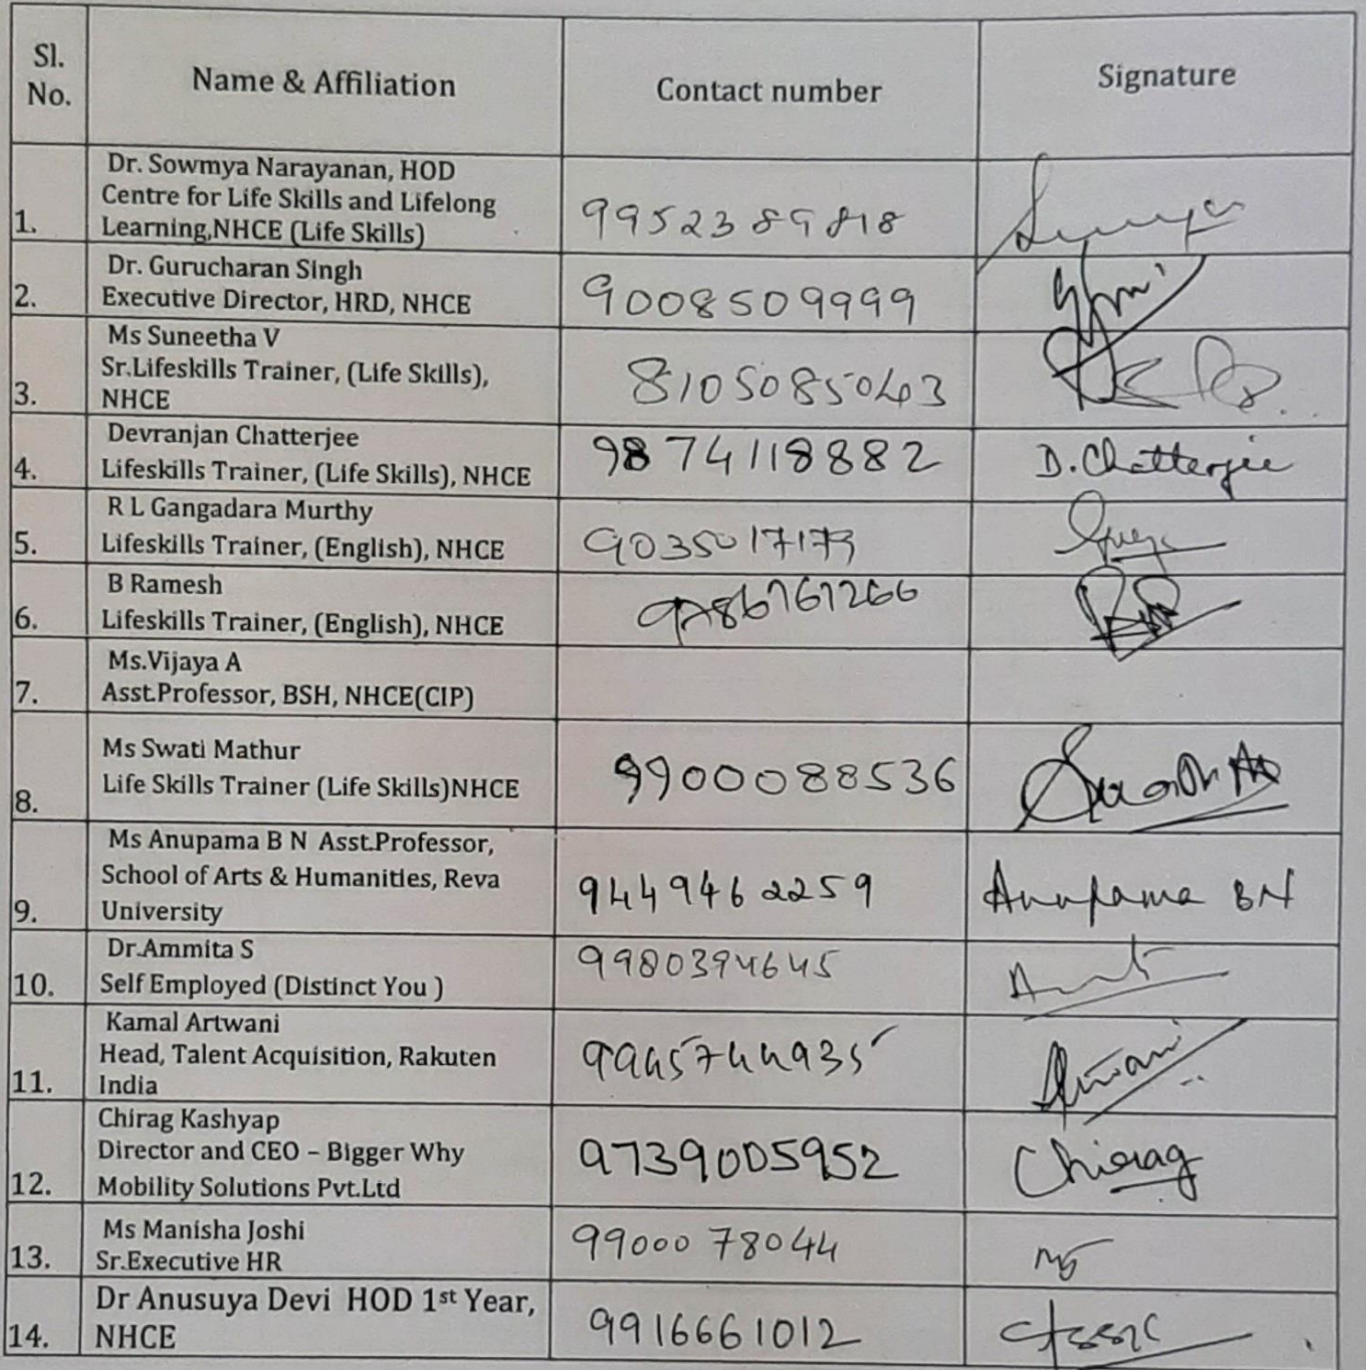 Sl. No.
Name & Affiliation
Contact number
Signature
1.
Dr. Sowmya Narayanan, HOD
Centre for Life Skills and Lifelong
Learning,NHCE (Life Skills)
9952389818
2.
Dr. Gurucharan Singh
Executive Director, HRD, NHCE
9008509999
3.
Ms Suneetha V
Sr.Lifeskills Trainer, (Life Skills),
NHCE
8105085043
4.
Devranjan Chatterjee
Lifeskills Trainer, (Life Skills), NHCE
9874118882
D.Chatterjee
5.
R L Gangadara Murthy
Lifeskills Trainer, (English), NHCE
6.
B Ramesh
Lifeskills Trainer, (English), NHCE
7.
Ms.Vijaya A
Asst.Professor, BSH, NHCE(CIP)
8.
Ms Swati Mathur
Life Skills Trainer (Life Skills)NHCE
9900088536
9.
Ms Anupama B N Asst.Professor,
School of Arts & Humanities, Reva
University
9449462259
Anupama BN
10.
Dr.Ammita S
Self Employed (Distinct You )
9980394645
11.
Kamal Artwani
Head, Talent Acquisition, Rakuten
India
9945744935
12.
Chirag Kashyap
Director and CEO – Bigger Why
Mobility Solutions Pvt.Ltd
9739005952
Chirag
13.
Ms Manisha Joshi
Sr.Executive HR
99000 78044
14.
Dr Anusuya Devi HOD 1st Year,
NHCE
9916661012